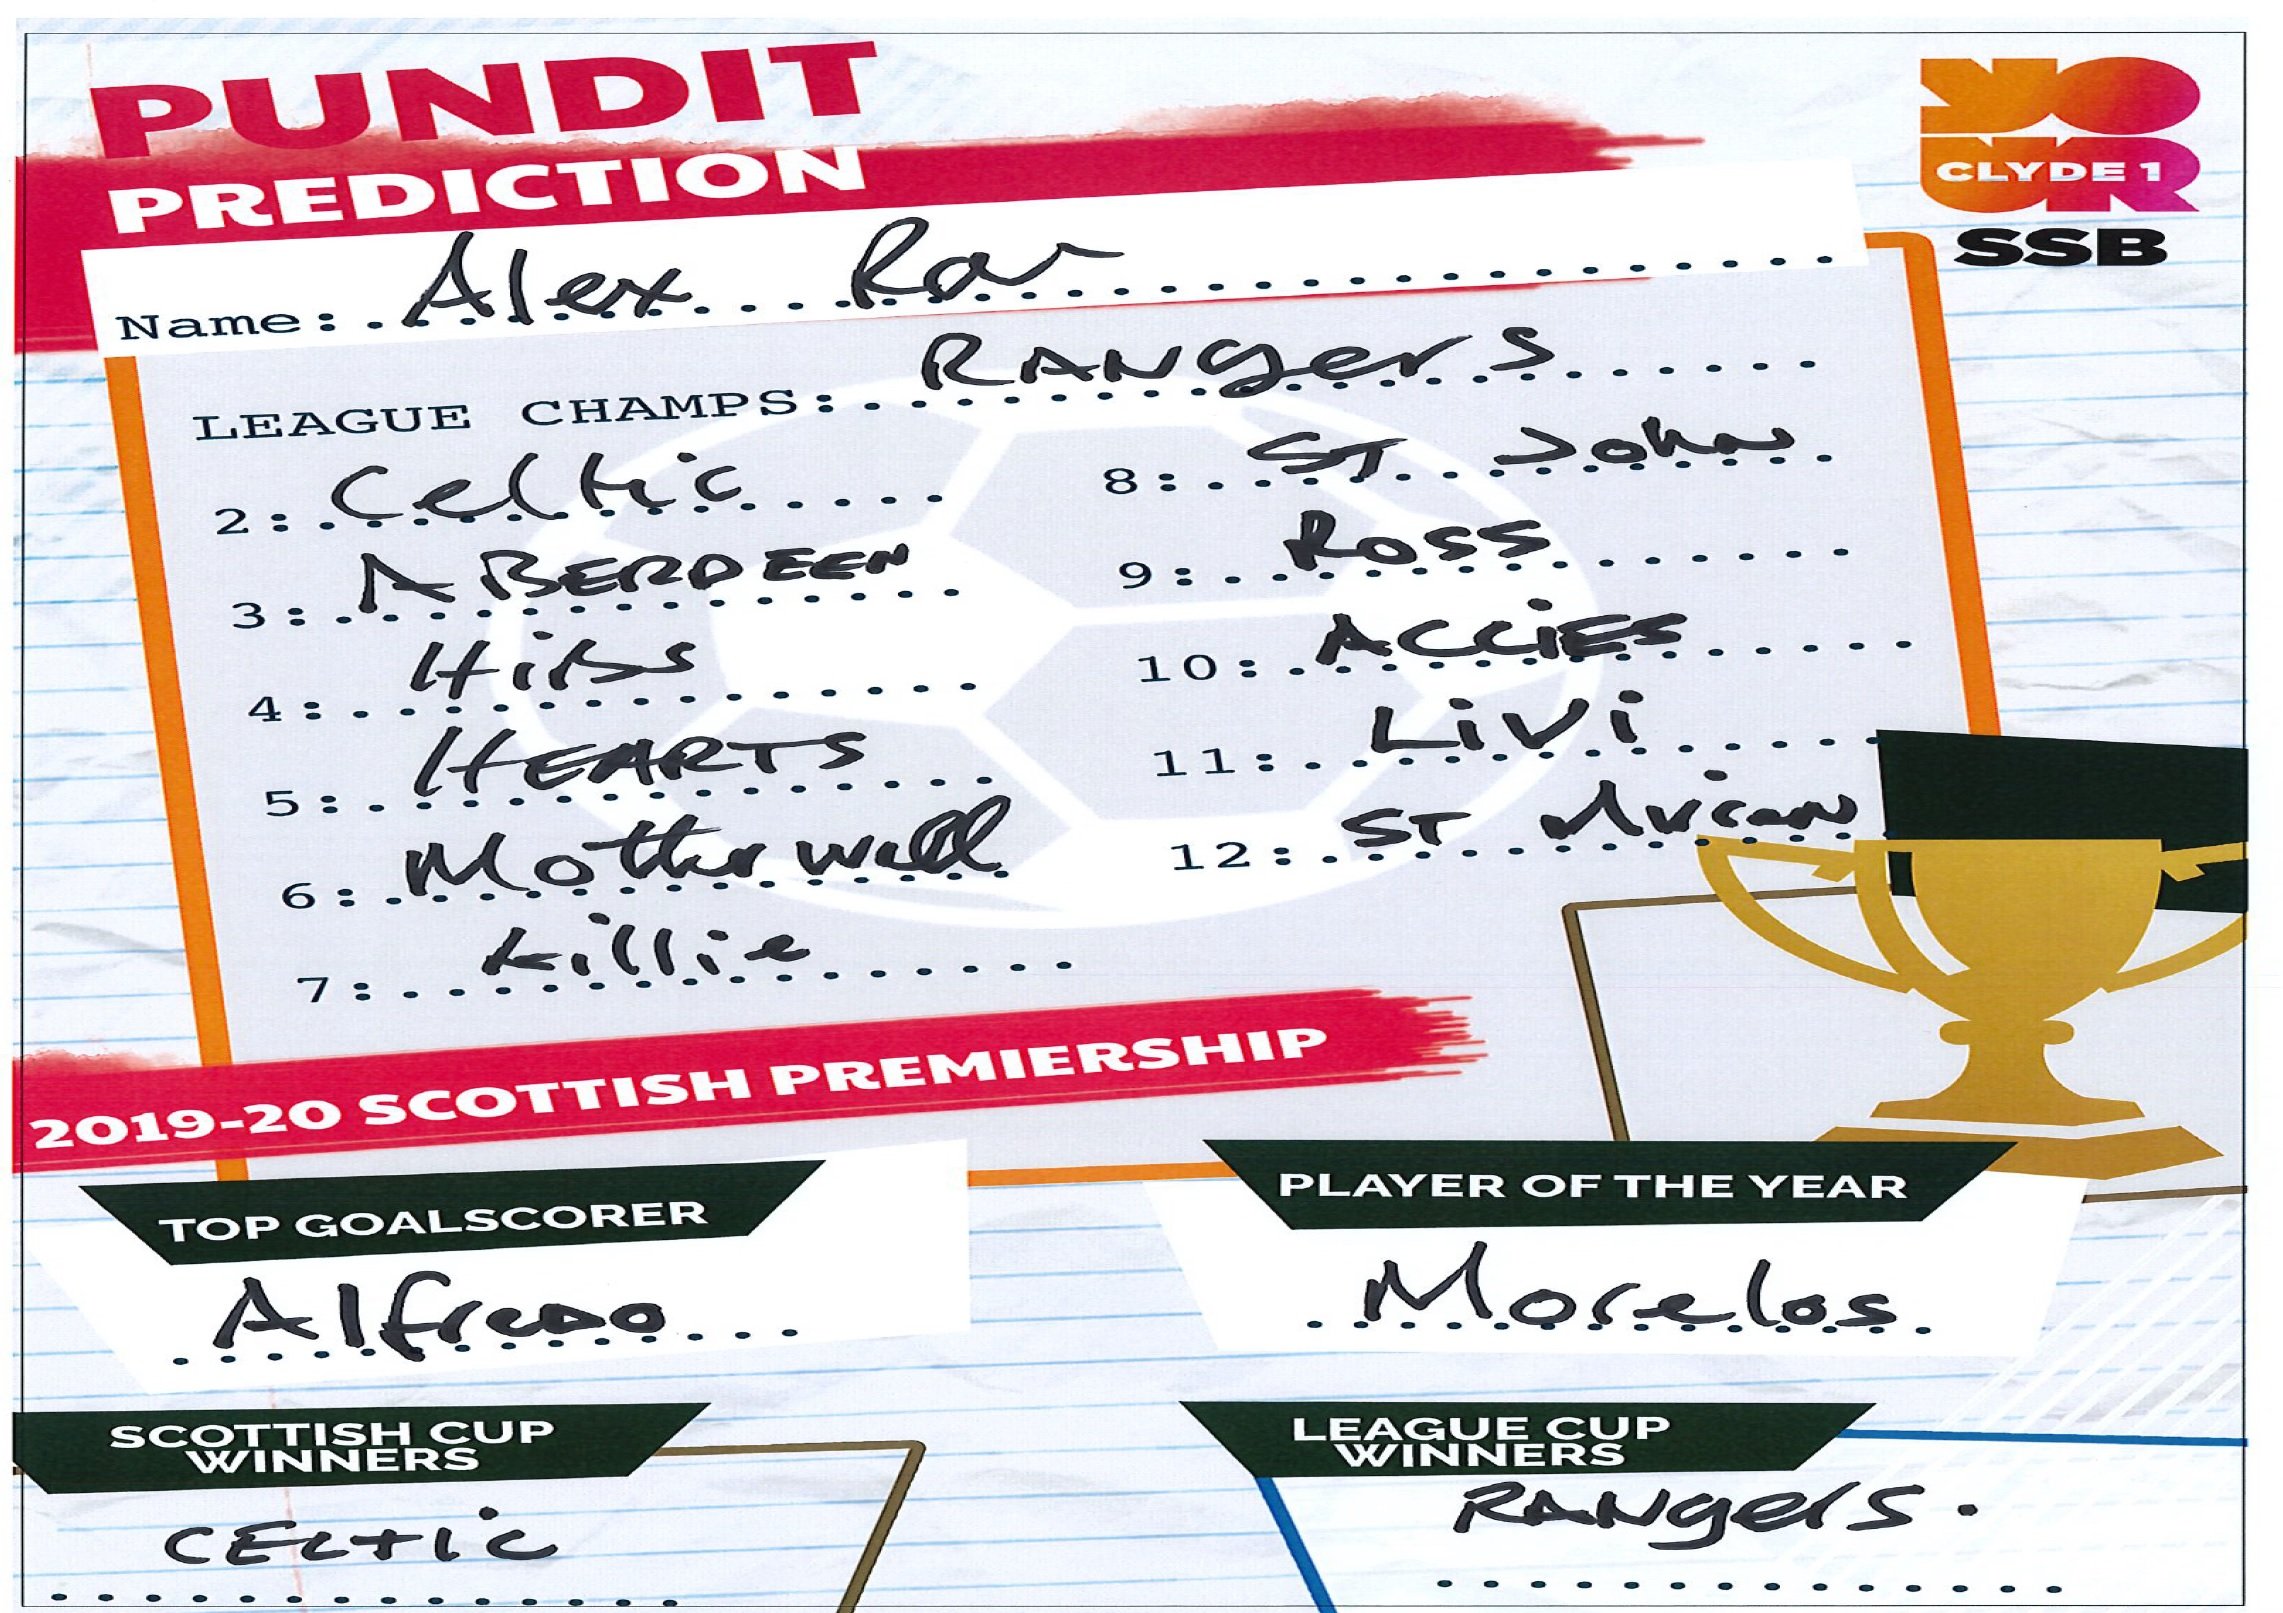 PUNDIT
PREDICTION
YOUR
CLYDE 1
SSB
Name: Alex Rae
LEAGUE CHAMPS: RANgers
2: Celtic
3: ABERDEEN
4: HiBs
5: HEARTS
6: Motherwell
7: Killie
8: ST John
9: Ross
10: ACCiES
11: LiVi
12: ST Mirren
2019-20 SCOTTISH PREMIERSHIP
TOP GOALSCORER
Alfredo
PLAYER OF THE YEAR
Morelos
SCOTTISH CUP
WINNERS
CELTIC
LEAGUE CUP
WINNERS
RANgers.